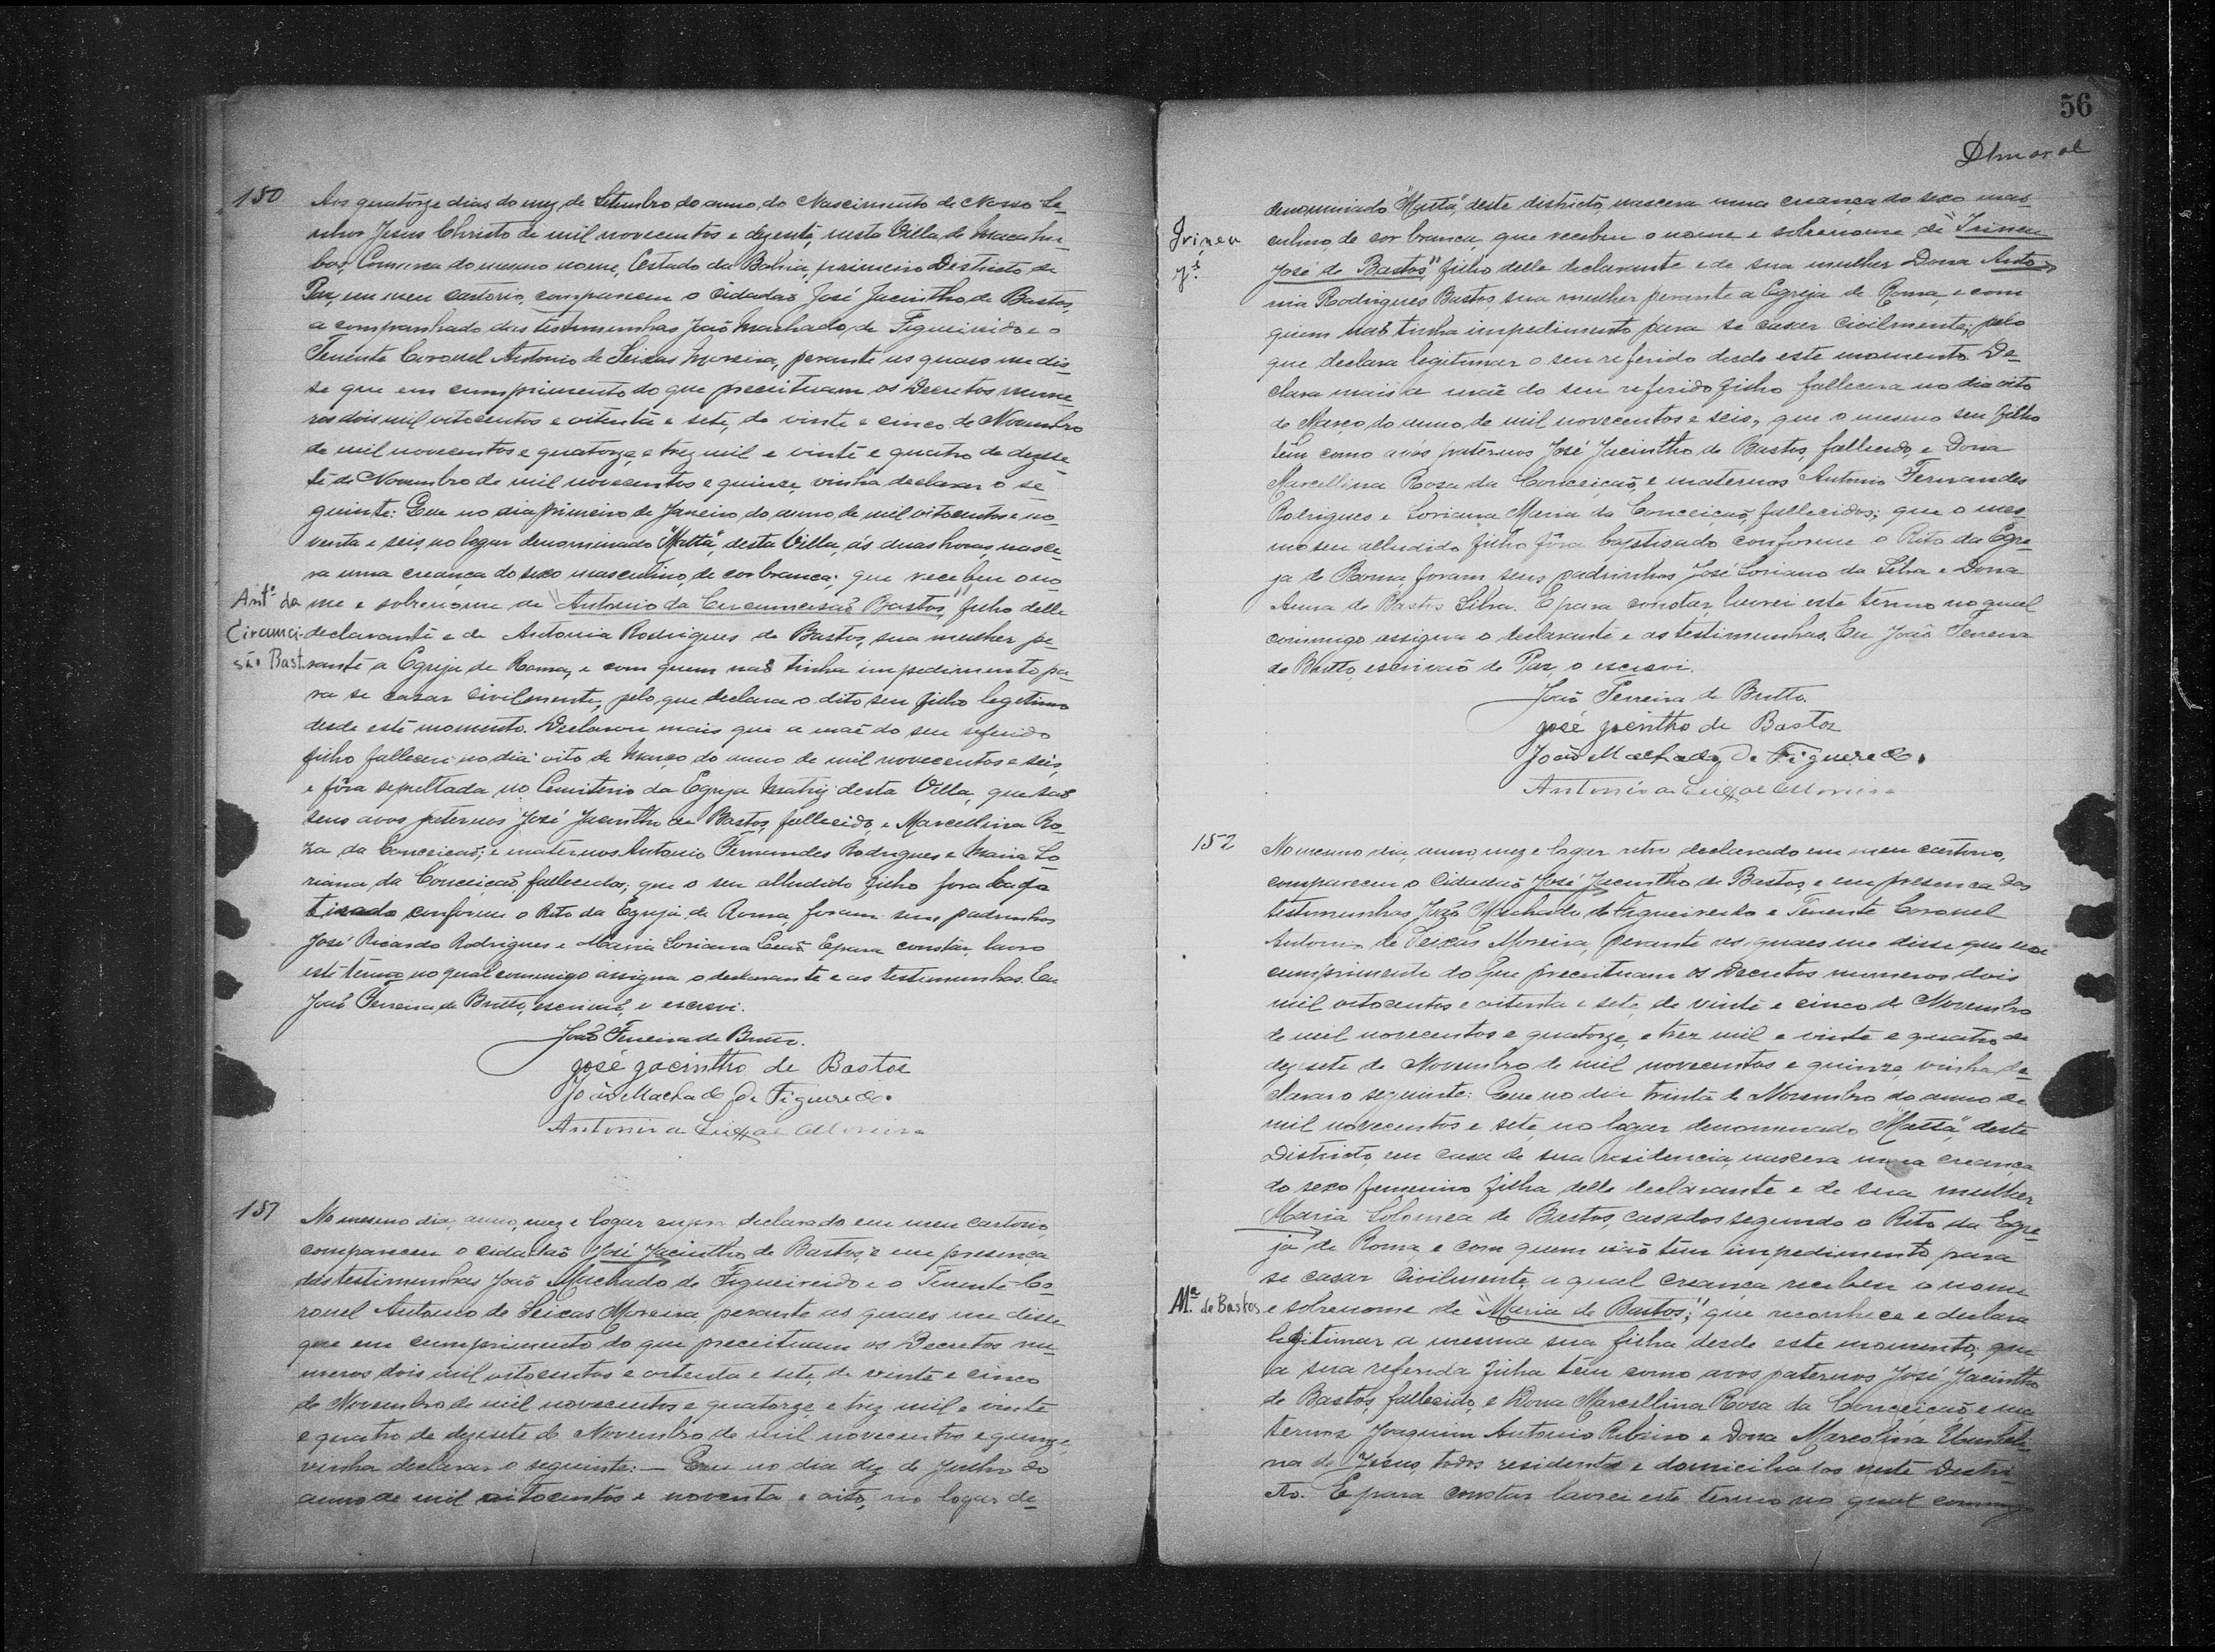 150 Aos quatorze dias do mez de Setembro do anno do Nascimento de Nosso Se-
nhor Jesus Christo de mil novecentos e dezesete, nesta Villa de Macahu-
bas, Comarca do mesmo nome, Estado da Bahia, primeiro Districto de
Paz, em meu cartorio, compareceu o cidadão José Jacintho de Bastos,
acompanhado das testimunhas João Machado de Figueiredo e o
Tenente Coronel Antonio de Seixas Moreira, perante as quaes me dis-
se que em cumprimento do que preceituam os Decretos nume-
ros dois mil oitocentos e oitenta e sete, de vinte e cinco de Novembro
de mil novecentos e quatorze, e trez mil e vinte e quatro de dezese-
te de Novembro de mil novecentos e quinze, vinha declarar o se-
guinte: Que no dia primeiro de Janeiro do anno de mil oitocentos e no-
venta e seis, no logar denominado "Matta", desta Villa, ás duas horas nasce-
ra uma creança do sexo masculino, de cor branca; que recebeu o no-
Antº da me e sobrenome de "Antonio da Circumcisaõ Bastos", filho delle
Circunci- declarante e de Antonia Rodrigues de Bastos, sua mulher pe-
são Bast. rante a Egreja de Roma, e com quem naõ tinha impedimento pa-
ra se casar civilmente, pelo que declara o dito seu filho legitimo
desde este momento. Declarou mais que a maẽ do seu referido
filho falleceu no dia oito de Março do anno de mil novecentos e seis,
e fôra sepultada no Cemiterio da Egreja Matriz desta Villa, que saõ
seus avos paternos José Jacintho de Bastos, fallecido, e Marcellina Ro-
za da Conceicaõ; e maternos Antonio Fernandes Rodrigues e Maria Lo
riana da Conceicaõ, fallecidos; que o seu alludido filho fora bap
tisado conforme o Rito da Egreja de Roma foram seus padrinhos
José Ricardo Rodrigues e Maria Loriana Leaõ. E para constar, lavro
este termo no qual commigo assigna o declarante e as testemunhas. Eu
João Ferreira de Britto, escrivaõ, o escrevi.
João Ferreira de Britto.
José Jacintho de Bastos
João Machado de Figueredo.
Antonio de Seixas Moreira
151 No mesmo dia, anno, mez e logar supra declarado em meu cartorio,
compareceu o cidadão José Jacintho de Bastos, e em presença
das testimunhas João Machado de Figueireido e o Tenente-Co-
ronel Antonio de Seixas Moreira perante as quaes me disse
que em cumprimento do que preceituam os Decretos nu-
meros dois mil oitocentos e oitenta e sete, de vinte e cinco
de Novembro de mil novecentos e quatorze, e trez mil e vinte
e quatro de dezesete de Novembro de mil novecentos e quinze,
vinha declarar o seguinte: — Que no dia dez de Julho do
anno de mil oitocentos e noventa e oito, no logar de-
56
Amaral
denominado "Matta", deste districto, nascera uma creança do sexo mas-
Irineu culino de cor branca, que recebeu o nome e sobrenome de "Irineu
Jé. José de Bastos" filho delle declarante e de sua mulher Dona Anto-
nia Rodrigues Bastos, sua mulher perante a Egreja de Roma, e com
quem naõ tinha impedimento para se casar civilmente; pelo
que declara legitimar o seu referido desde este momento. De-
clara mais a maẽ do seu referido filho fallecera no dia oito
de Março do anno de mil novecentos e seis, que o mesmo seu filho
tem como avós paternos José Jacintho de Bastos, fallecido, e Dona
Marcellina Rosa da Conceiçaõ, e maternos Antonio Fernandes
Rodrigues e Loriana Maria da Conceiçaõ, fallecidos; que o mes-
mo seu alludido filho fôra baptisado conforme o Rito da Egre-
ja de Roma, foram seus padrinhos José Loriano da Silva e Dona
Anna de Bastos Silva. E para constar, lavrei este termo no qual
commigo assigna o declarante e as testimunhas. Eu João Ferreira
de Britto, escrivaõ de Paz, o escrevi.
João Ferreira de Britto.
José Jacintho de Bastos
João Machado de Figueredo.
Antonio de Seixas Moreira
152 No mesmo dia, anno, mez e logar retro declarado em meu cartorio,
compareceu o Cidadaõ José Jacintho de Bastos, e em presenca das
testimunhas João Machado de Figueireido e Tenente Coronel
Antonio de Seixas Moreira, perante as quaes me disse que em
cumprimento do que preceituam os Decretos numeros dois
mil oitocentos e oitenta e sete, de vinte e cinco de Novembro
de mil novecentos e quatorze, e trez mil e vinte e quatro de
dezesete de Novembro de mil novecentos e quinze, vinha de-
clarar o seguinte: Que no dia trinta de Novembro do anno de
mil novecentos e sete, no logar denominado "Matta", deste
Districto, em casa de sua residencia, nascera uma creança
do sexo femenino, filha delle declarante e de sua mulher
Maria Solomea de Bastos, casados segundo o Rito da Egre-
ja de Roma, e com quem não tem impedimento para
se casar civilmente, a qual creança recebeu o nome
Mª de Bastos e sobrenome de "Maria de Bastos;" que reconhece e declara
legitimar a mesma sua filha desde este momento; que
a sua referida filha tem como avos paternos José Jacintho
de Bastos, fallecido, e Dona Marcellina Rosa da Conceiçaõ e ma
ternos Joaquim Antonio Ribeiro e Dona Marcolina Umbeli-
na de Jesus, todos residentes e domiciliados neste Distri-
cto. E para constar lavrei este termo no qual commigo